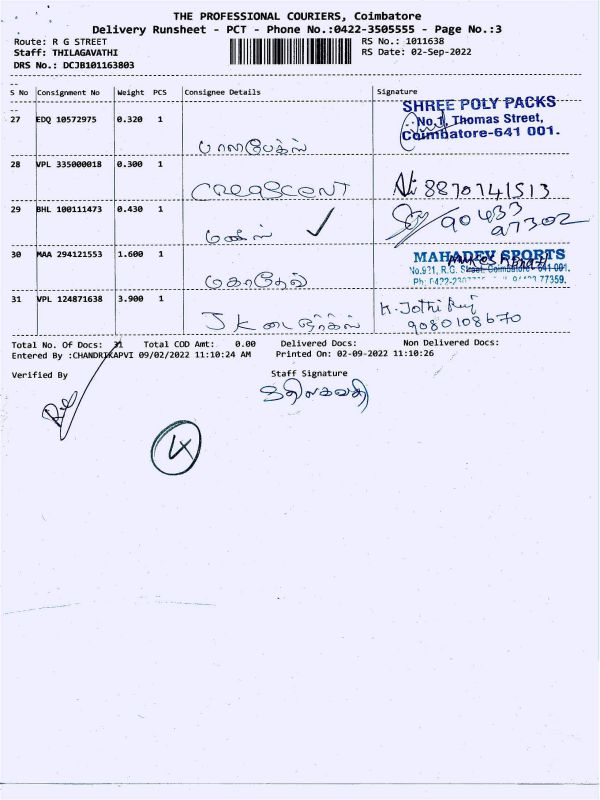 THE PROFESSIONAL COURIERS, Coimbatore
Delivery Runsheet - PCT - Phone No.:0422-3505555 - Page No.:3
Route: R G STREET RS No.: 1011638
Staff: THILAGAVATHI RS Date: 02-Sep-2022
DRS No.: DCJB101163803
S No Consignment No Weight PCS Consignee Details Signature
SHREE POLY PACKS
27 EDQ 10572975 0.320 1 No.1, Thomas Street,
Coimbatore-641 001.
28 VPL 335000018 0.300 1
CREASCENT 8870741513
29 BHL 100111473 0.430 1 90433
97302
30 MAA 294121553 1.600 1 MAHADEV SPORTS
No.921, R.G. Street, Coimbatore - 641 001.
மகாதேவ்
31 VPL 124871638 3.900 1 K. Jothi
JK 9080108670
Total No. Of Docs: 31 Total COD Amt: 0.00 Delivered Docs: Non Delivered Docs:
Entered By :CHANDRIKAPVI 09/02/2022 11:10:24 AM Printed On: 02-09-2022 11:10:26
Verified By Staff Signature
திலகவதி
4